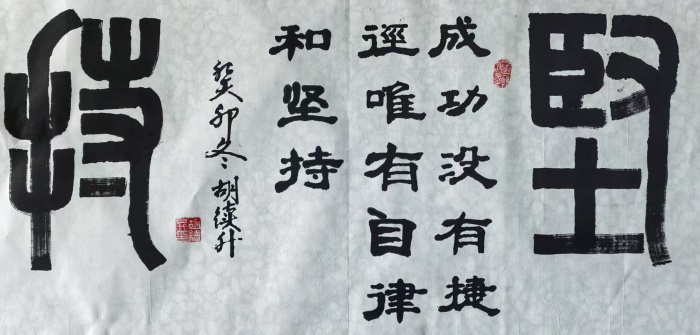 堅
成功没有捷
徑唯有自律
和坚持
癸卯冬 胡续升
持